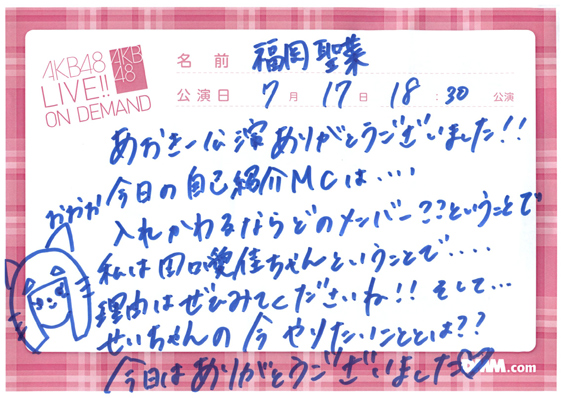 AKB48
LIVE!!
ON DEMAND
AKB
48
名前 福岡聖菜
公演日 7月17日 18:30公演
あおきー公演ありがとうございました!!
今日の自己紹介MCは、、、
がおがお
入れかわるならどのメンバー??ということで
私は田口愛佳ちゃんということで、、、、
理由はぜひみてくださいね!! そして、、、
せいちゃんの今やりたいこととは??
今日はありがとうございました♡
DMM.com